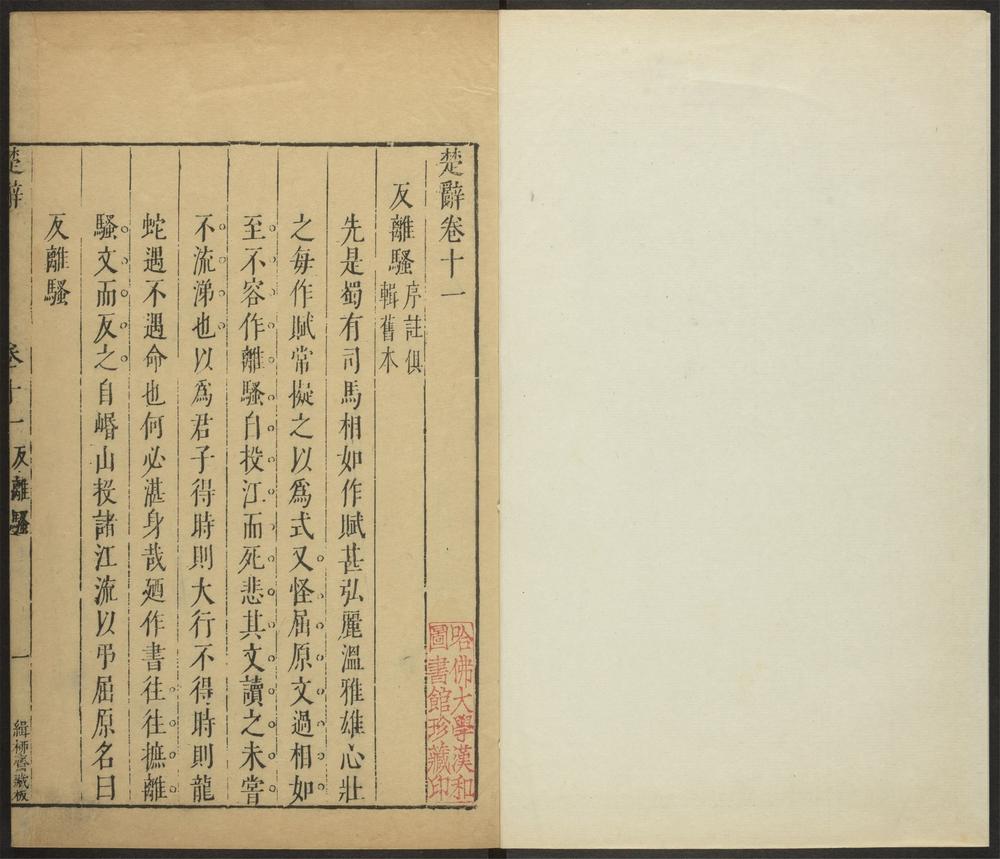 楚辭卷十一
反離騷 序註俱
輯舊本
先是蜀有司馬相如作賦甚弘麗溫雅雄心壯
之每作賦常擬之以爲式又怪屈原文過相如
至不容作離騷自投江而死悲其文讀之未嘗
不流涕也以爲君子得時則大行不得時則龍
蛇遇不遇命也何必湛身哉廼作書往往摭離
騷文而反之自㟭山投諸江流以弔屈原名曰
反離騷
楚辭 卷十一 反離騷 一 緝柳齋藏板
哈佛大學漢和
圖書館珍藏印